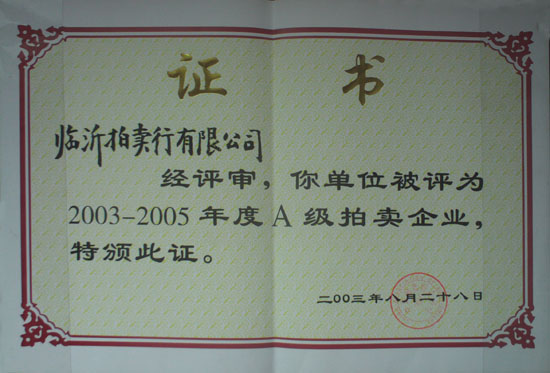 证书
临沂拍卖行有限公司
经评审，你单位被评为
2003-2005年度A级拍卖企业，
特颁此证。
二00三年八月二十八日